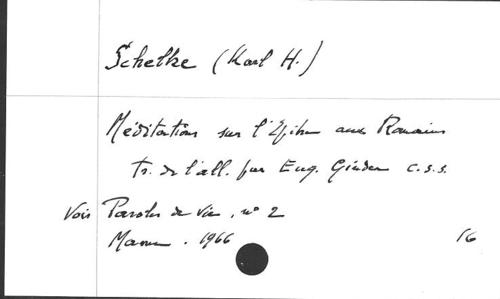 Schelke (Karl H.)
Méditations sur l'Epître aux Romains
tr. de l'all. par Eug. Ginder c.s.s.
Voir Paroles de vie, nº 2
Mame. 1966 16